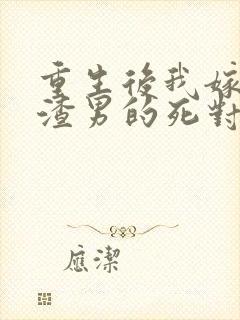 重生後我嫁
渣男的死對
應潔